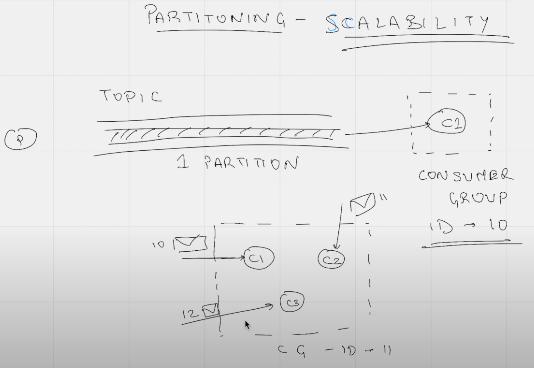 PARTITONING - SCALABILITY
TOPIC
P
C1
1 PARTITION
CONSUMER
GROUP
ID → 10
11
10
C1
C2
12
C3
CG - ID → 11